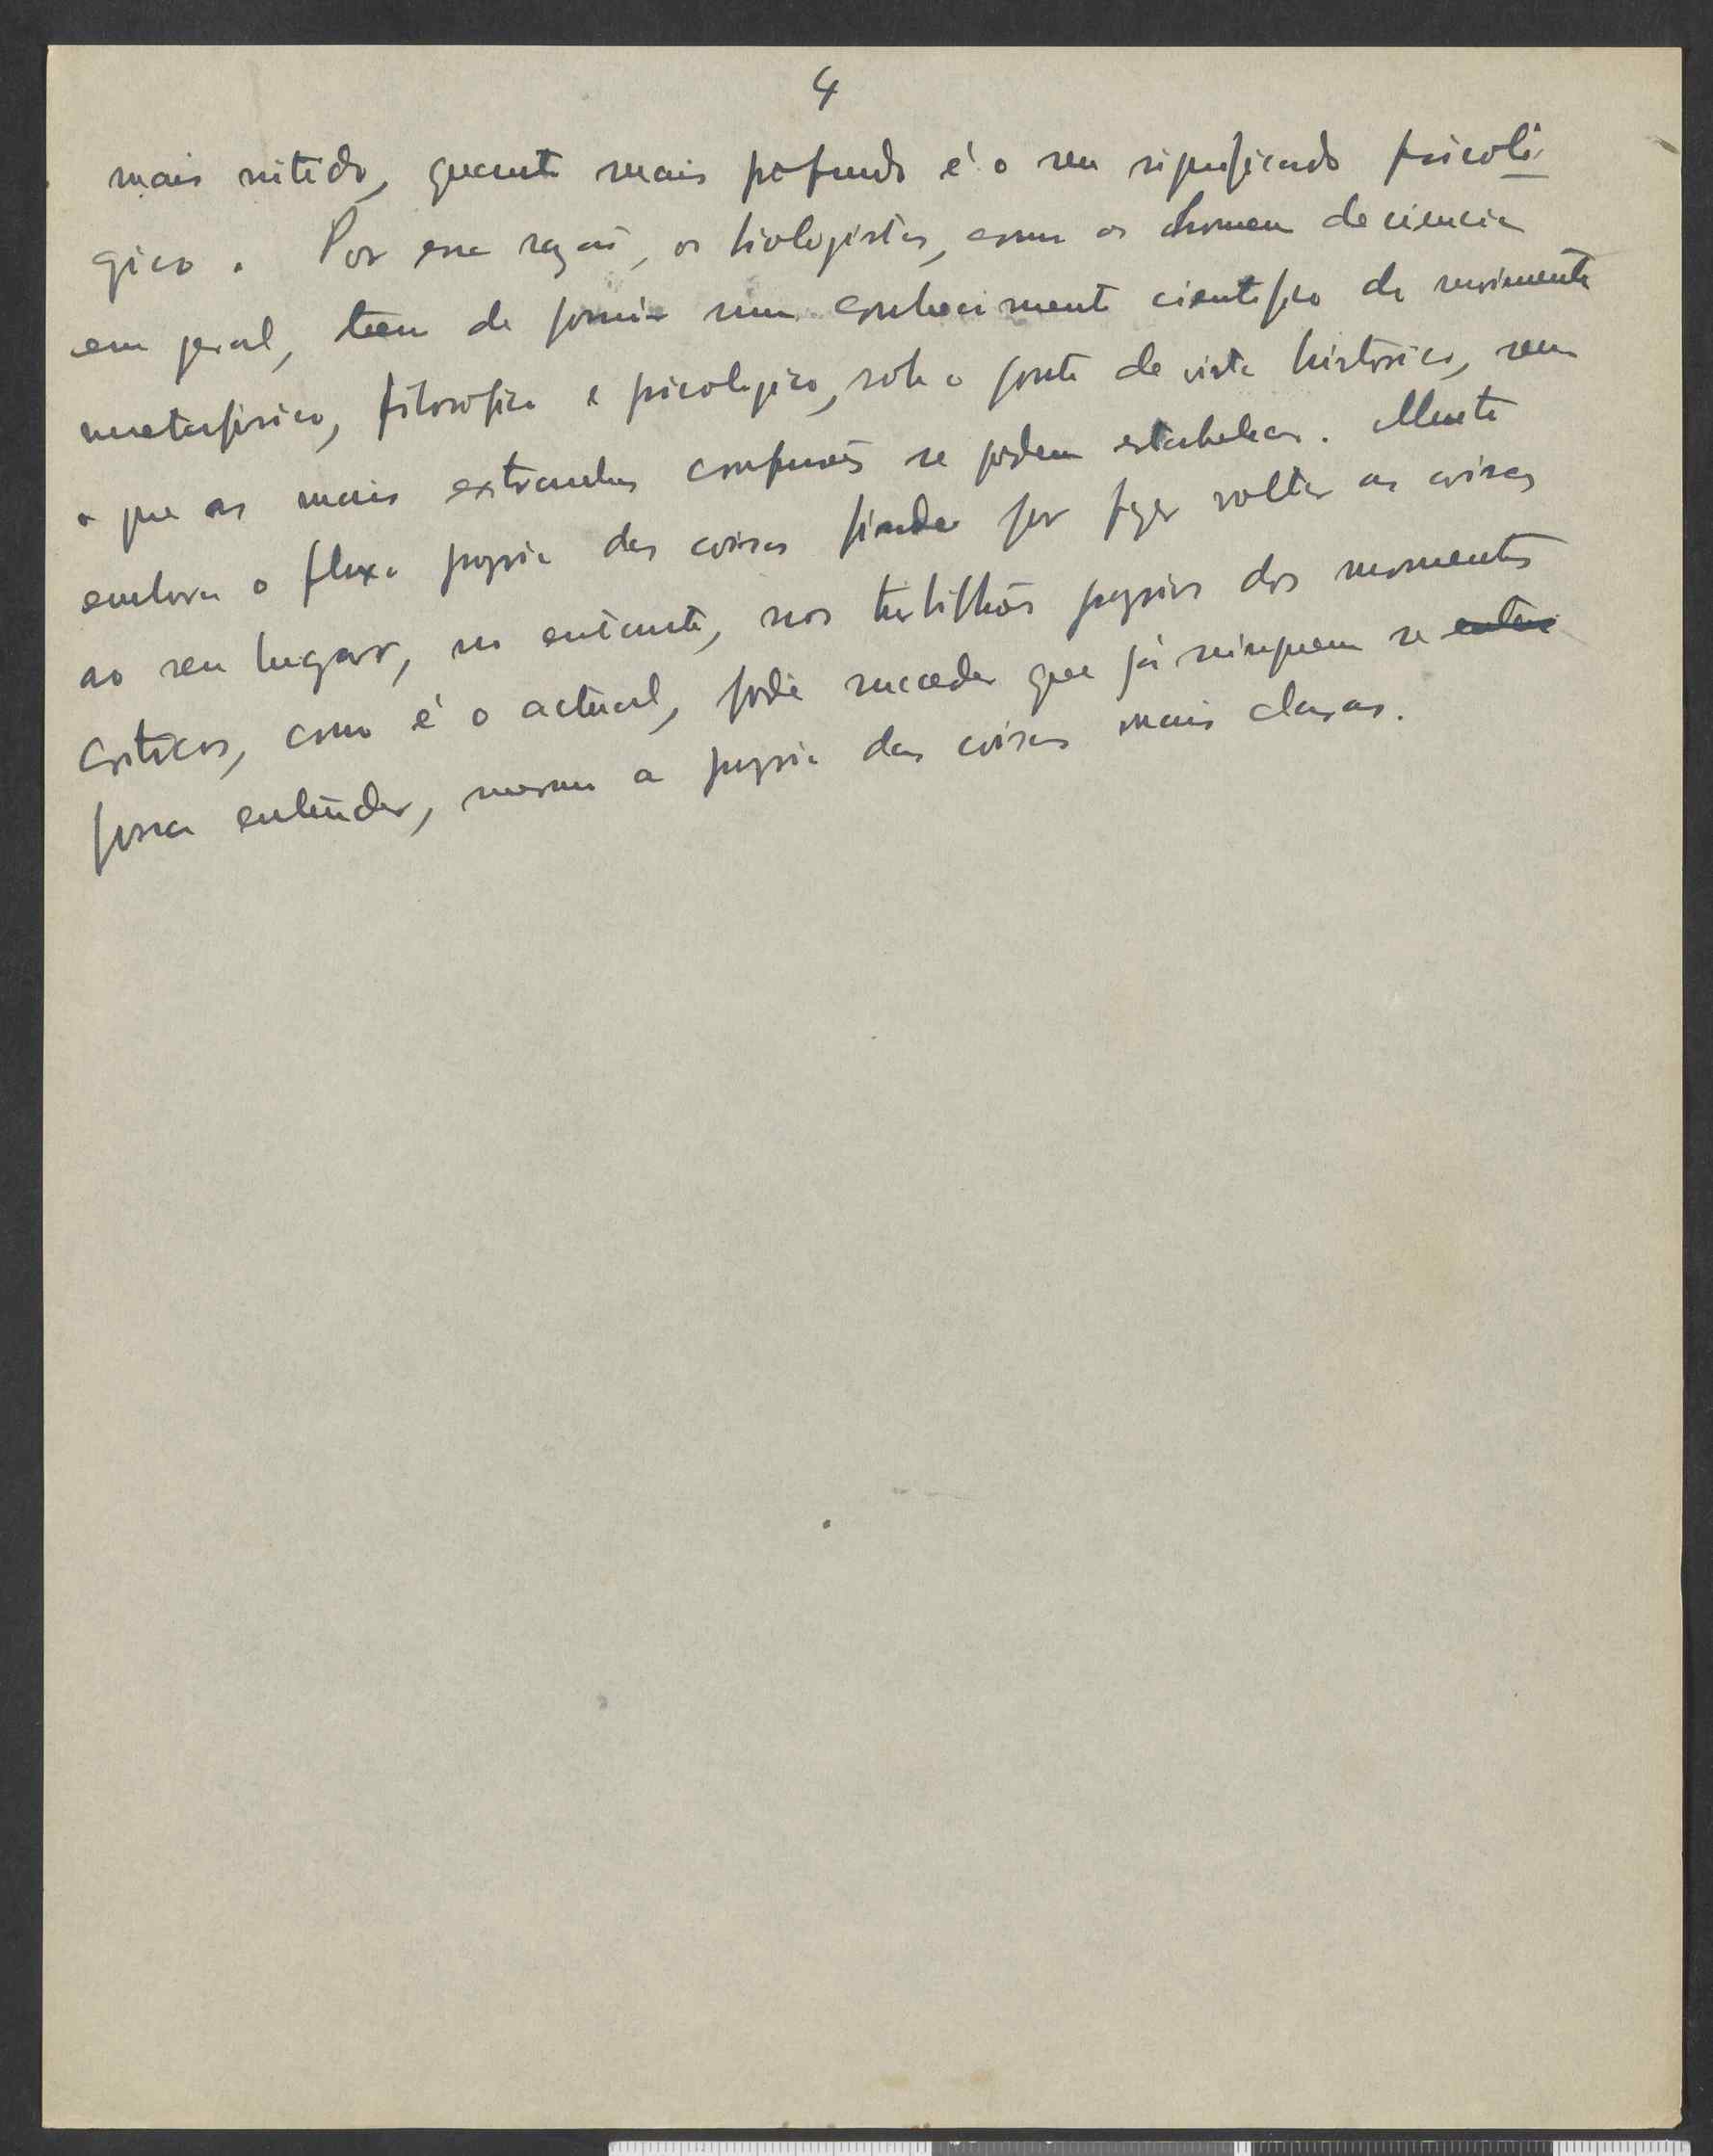 4
mais nitido, quanto mais profundo é o seu significado psicoló-
gico. Por essa razão, os biologistas, como os homem de ciencia
em geral, teem de possuir um conhecimento cientifico do movimento
metafisico, filosofico e psicologico, sob o ponto de vista historico, sem
o que as mais extranhas confusões se podem estabelecer. Muito
embora o fluxo proprio das coisas finde por fazer voltar as coisas
ao seu lugar, no entanto, nos turbilhões proprios dos momentos
criticos, como é o actual, pode suceder que já ninguem se enten
possa entender, mesmo a proposito das coisas mais claras.